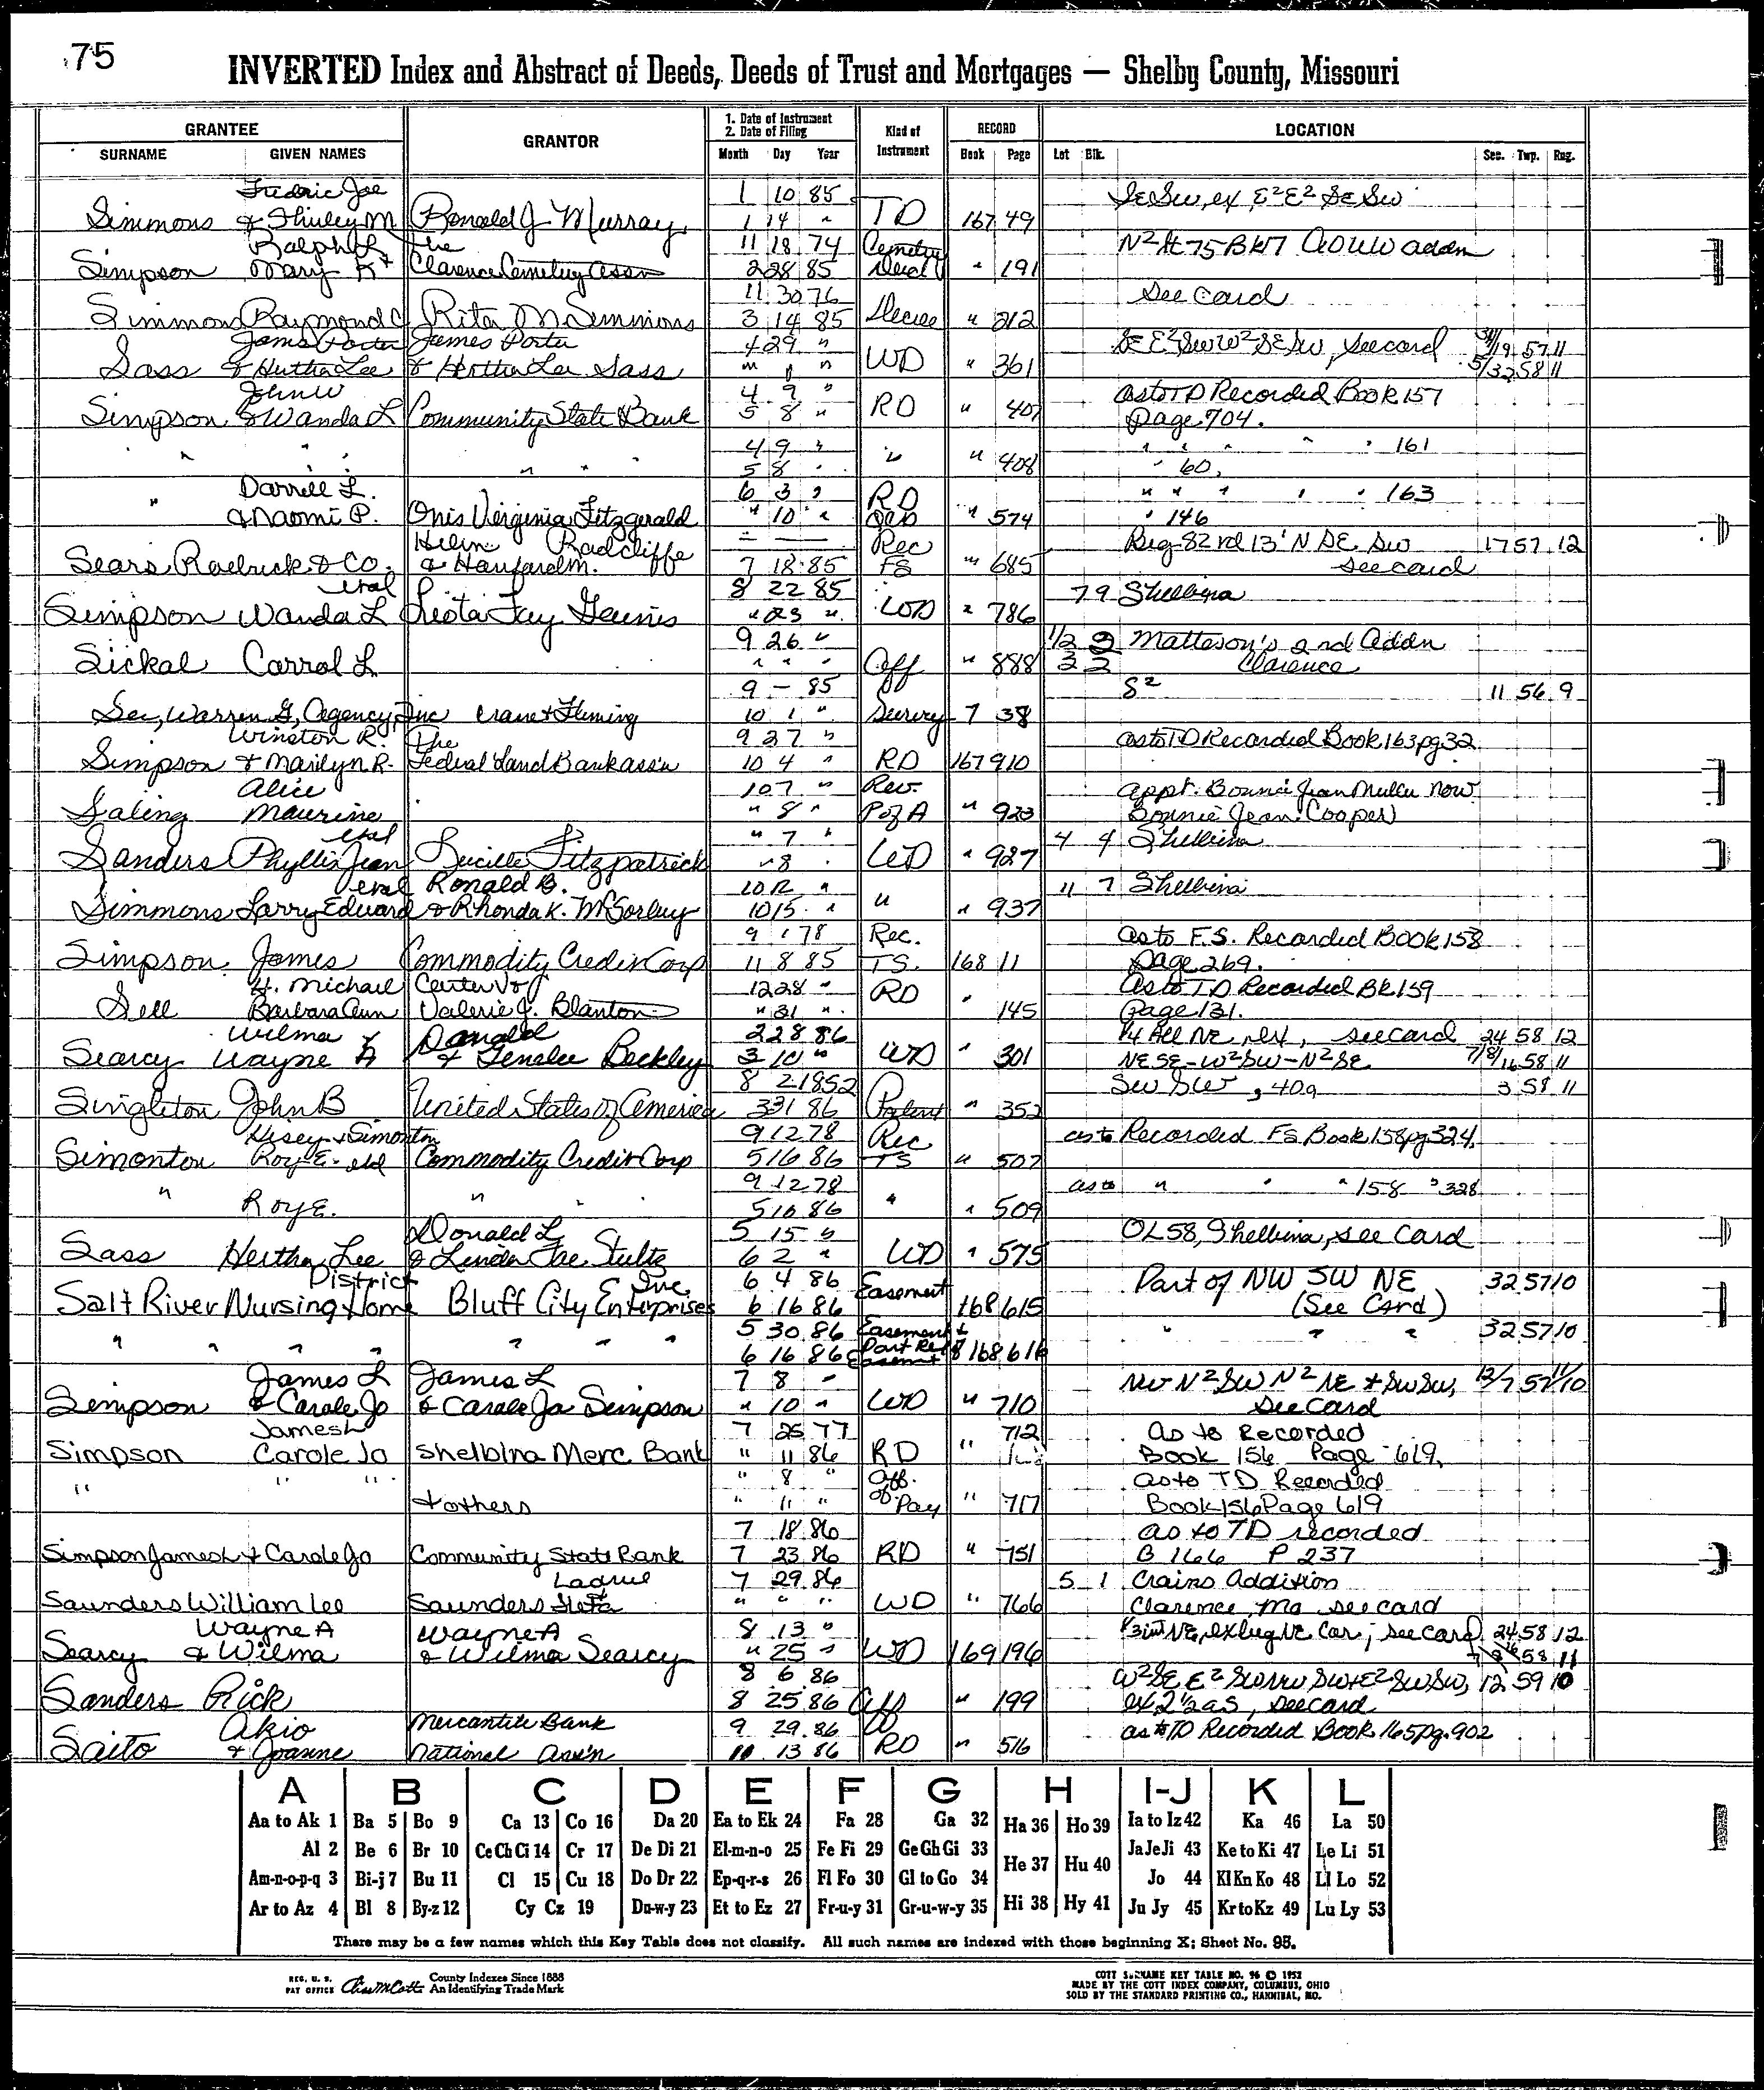 75
INVERTED Index and Abstract of Deeds, Deeds of Trust and Mortgages — Shelby County, Missouri
GRANTEE GRANTOR 1. Date of Instrument 2. Date of Filing Kind of Instrument RECORD LOCATION
SURNAME GIVEN NAMES Month Day Year Book Page Lot Blk. Sec. Twp. Rng.
Fredric Joe 1 10 85 SESW, ex E²E² SESW
Simmons & Shirley M Ronald J Murray 1 14 " TD 167 49
Ralph L The 11 18 74 Cemetery N² Lt 75 Bk 7 AOUW addn
Simpson Mary K + Clarence Cemetery Assn 2 28 85 Deed " 191
11 30 76 See card
Simmons Raymond C Rita M Simmons 3 14 85 Decree " 212
James Porter James Porter 4 29 " SE E² SW W² SE SW, see card 31/19 57 11
Sass & Hertha Lee & Hertha Lee Sass " " " WD " 361 5/32 58 11
John W 4 9 " as to TD Recorded Book 157
Simpson & Wanda L Community State Bank 5 8 " RD " 407 page 704.
" " " 4 9 " " " " " " 161
" " " 5 8 " " 408 " 60.
Darrell L. 6 3 " RD " " " " " 163
" & Naomi P. Onis Virginia Fitzgerald " 10 " " 574 " 146
Helen Radcliffe — — Rec Beg 82 rd 13' N SE SW 17 57 12
Sears Roebuck & Co. & Hanford M. 7 18 85 FS " 685 see card
etal 8 22 85 7 9 Shelbina
Simpson Wanda L Leota Fay Gaines " 23 " WD " 786
9 26 " 1/2 2 Matteson's 2nd Addn
Sickal Carrol L " " " Aff " 888 3 2 Clarence
9 — 85 S² 11 56 9
See, Warren G, Agency, Inc Crane & Fleming 10 1 " Survey 7 38
Winston R. The 9 27 " as to TD Recorded Book 163 pg 32
Simpson & Marilyn R. Federal Land Bank ass'n 10 4 " RD 167 910
Alice 10 7 " Rev. appt. Bonnie Jean Muller now
Saling Maurine " 8 " P of A " 923 Bonnie Jean Cooper
etal " 7 " 4 4 Shelbina
Sanders Phyllis Jean Lucille F. Fitzpatrick " 8 " WD " 927
etal Ronald B. 10 12 " 11 7 Shelbina
Simmons Larry Edward & Rhonda K. McSorley 10 15 " " " 937
9 1 78 Rec. as to F.S. Recorded Book 158
Simpson James Commodity Credit Corp 11 8 85 TS. 168 11 page 269.
H. Michael Carter V & 12 28 " RD As to TD Recorded Bk 159
Sell Barbara Ann Valerie J. Blanton " 31 " " 145 Page 131.
Wilma & Donald 2 28 86 1/4 All NE, ex, see card 24 58 12
Searcy Wayne A & Jenalee Beckley 3 10 " WD " 301 NE SE - W² SW - N² SE 7/8/16 58 11
8 2 1852 SW SW, 40a 3 58 11
Singleton John B United States of America 3 31 86 Patent " 352
Hisey & Simonton 9 12 78 Rec as to Recorded FS Book 158 pg 324.
Simonton Roy E. etal Commodity Credit Corp 5 16 86 TS " 507
9 12 78 as to " " " 158 " 328
" Roy E. " " 5 16 86 " " 509
Donald L 5 15 " OL 58, Shelbina, see Card
Sass Hertha Lee & Linda Fae Stultz 6 2 " WD " 575
District Inc. 6 4 86 Easement Part of NW SW NE 32 57 10
Salt River Nursing Home Bluff City Enterprises 6 16 86 168 615 (See Card)
" " " " " " " 5 30 86 Easement & " " " 32 57 10
6 16 86 Part Rel Easemt 168 616
James L James L 7 8 " NW N² SW N² NE & SW SW, 12/7 57 11/10
Simpson & Carole Jo & Carole Jo Simpson " 10 " WD " 710 See Card
James L 7 25 77 712 As to Recorded
Simpson Carole Jo Shelbina Merc. Bank " 11 86 RD " Book 156 Page 619.
" " " " 8 " Aff. as to TD Recorded
& others " 11 " of Pay " 717 Book 156 Page 619
7 18 86 as to TD recorded
Simpson James L & Carole Jo Community State Bank 7 23 86 RD " 751 B 166 P 237
Ladrue 7 29 86 5 1 Crains Addition
Saunders William Lee Saunders " " " WD " 766 Clarence, Mo see card
Wayne A Wayne A 8 13 " 1/3 int NE, ex beg NE Cor; see card 24 58 12
Searcy & Wilma & Wilma Searcy " 25 " WD 169 196 58 11
8 6 86 W² SE E² SW NW SW & E² SW SW, 12 59 10
Sanders Rick 8 25 86 Aff " 199 ex 2½ as, see card
Akio Mercantile Bank 9 29 86 as to TD Recorded Book 165 pg. 902
Saito & Joanne National Ass'n 10 13 86 RD " 516
A B C D E F G H I-J K L
Aa to Ak 1 Ba 5 Bo 9 Ca 13 Co 16 Da 20 Ea to Ek 24 Fa 28 Ga 32 Ha 36 Ho 39 Ia to Iz 42 Ka 46 La 50
Al 2 Be 6 Br 10 Ce Ch Ci 14 Cr 17 De Di 21 El-m-n-o 25 Fe Fi 29 Ge Gh Gi 33 He 37 Hu 40 Ja Je Ji 43 Ke to Ki 47 Le Li 51
Am-n-o-p-q 3 Bi-j 7 Bu 11 Cl 15 Cu 18 Do Dr 22 Ep-q-r-s 26 Fl Fo 30 Gl to Go 34 Jo 44 Kl Kn Ko 48 Ll Lo 52
Ar to Az 4 Bl 8 By-z 12 Cy Cz 19 Du-w-y 23 Et to Ez 27 Fr-u-y 31 Gr-u-w-y 35 Hi 38 Hy 41 Ju Jy 45 Kr to Kz 49 Lu Ly 53
There may be a few names which this Key Table does not classify. All such names are indexed with those beginning X; Sheet No. 95.
REG. U. S. PAT OFFICE County Indexes Since 1888 An Identifying Trade Mark
COTT SURNAME KEY TABLE NO. 96 © 1952
MADE BY THE COTT INDEX COMPANY, COLUMBUS, OHIO
SOLD BY THE STANDARD PRINTING CO., HANNIBAL, MO.